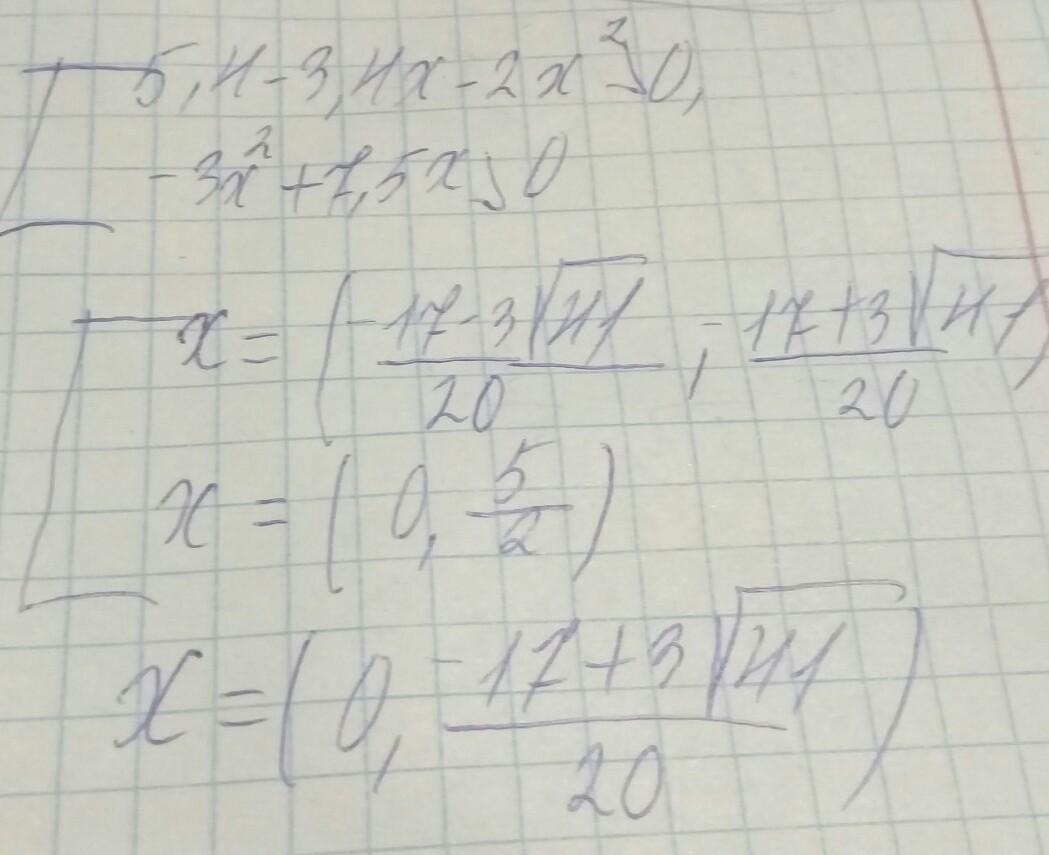 5,4-3,4x-2x²>0,
-3x²+7,5x>0
x = (-17-3√41/20; -17+3√41/20)
x = (0, 5/2)
x = (0, -17+3√41/20)